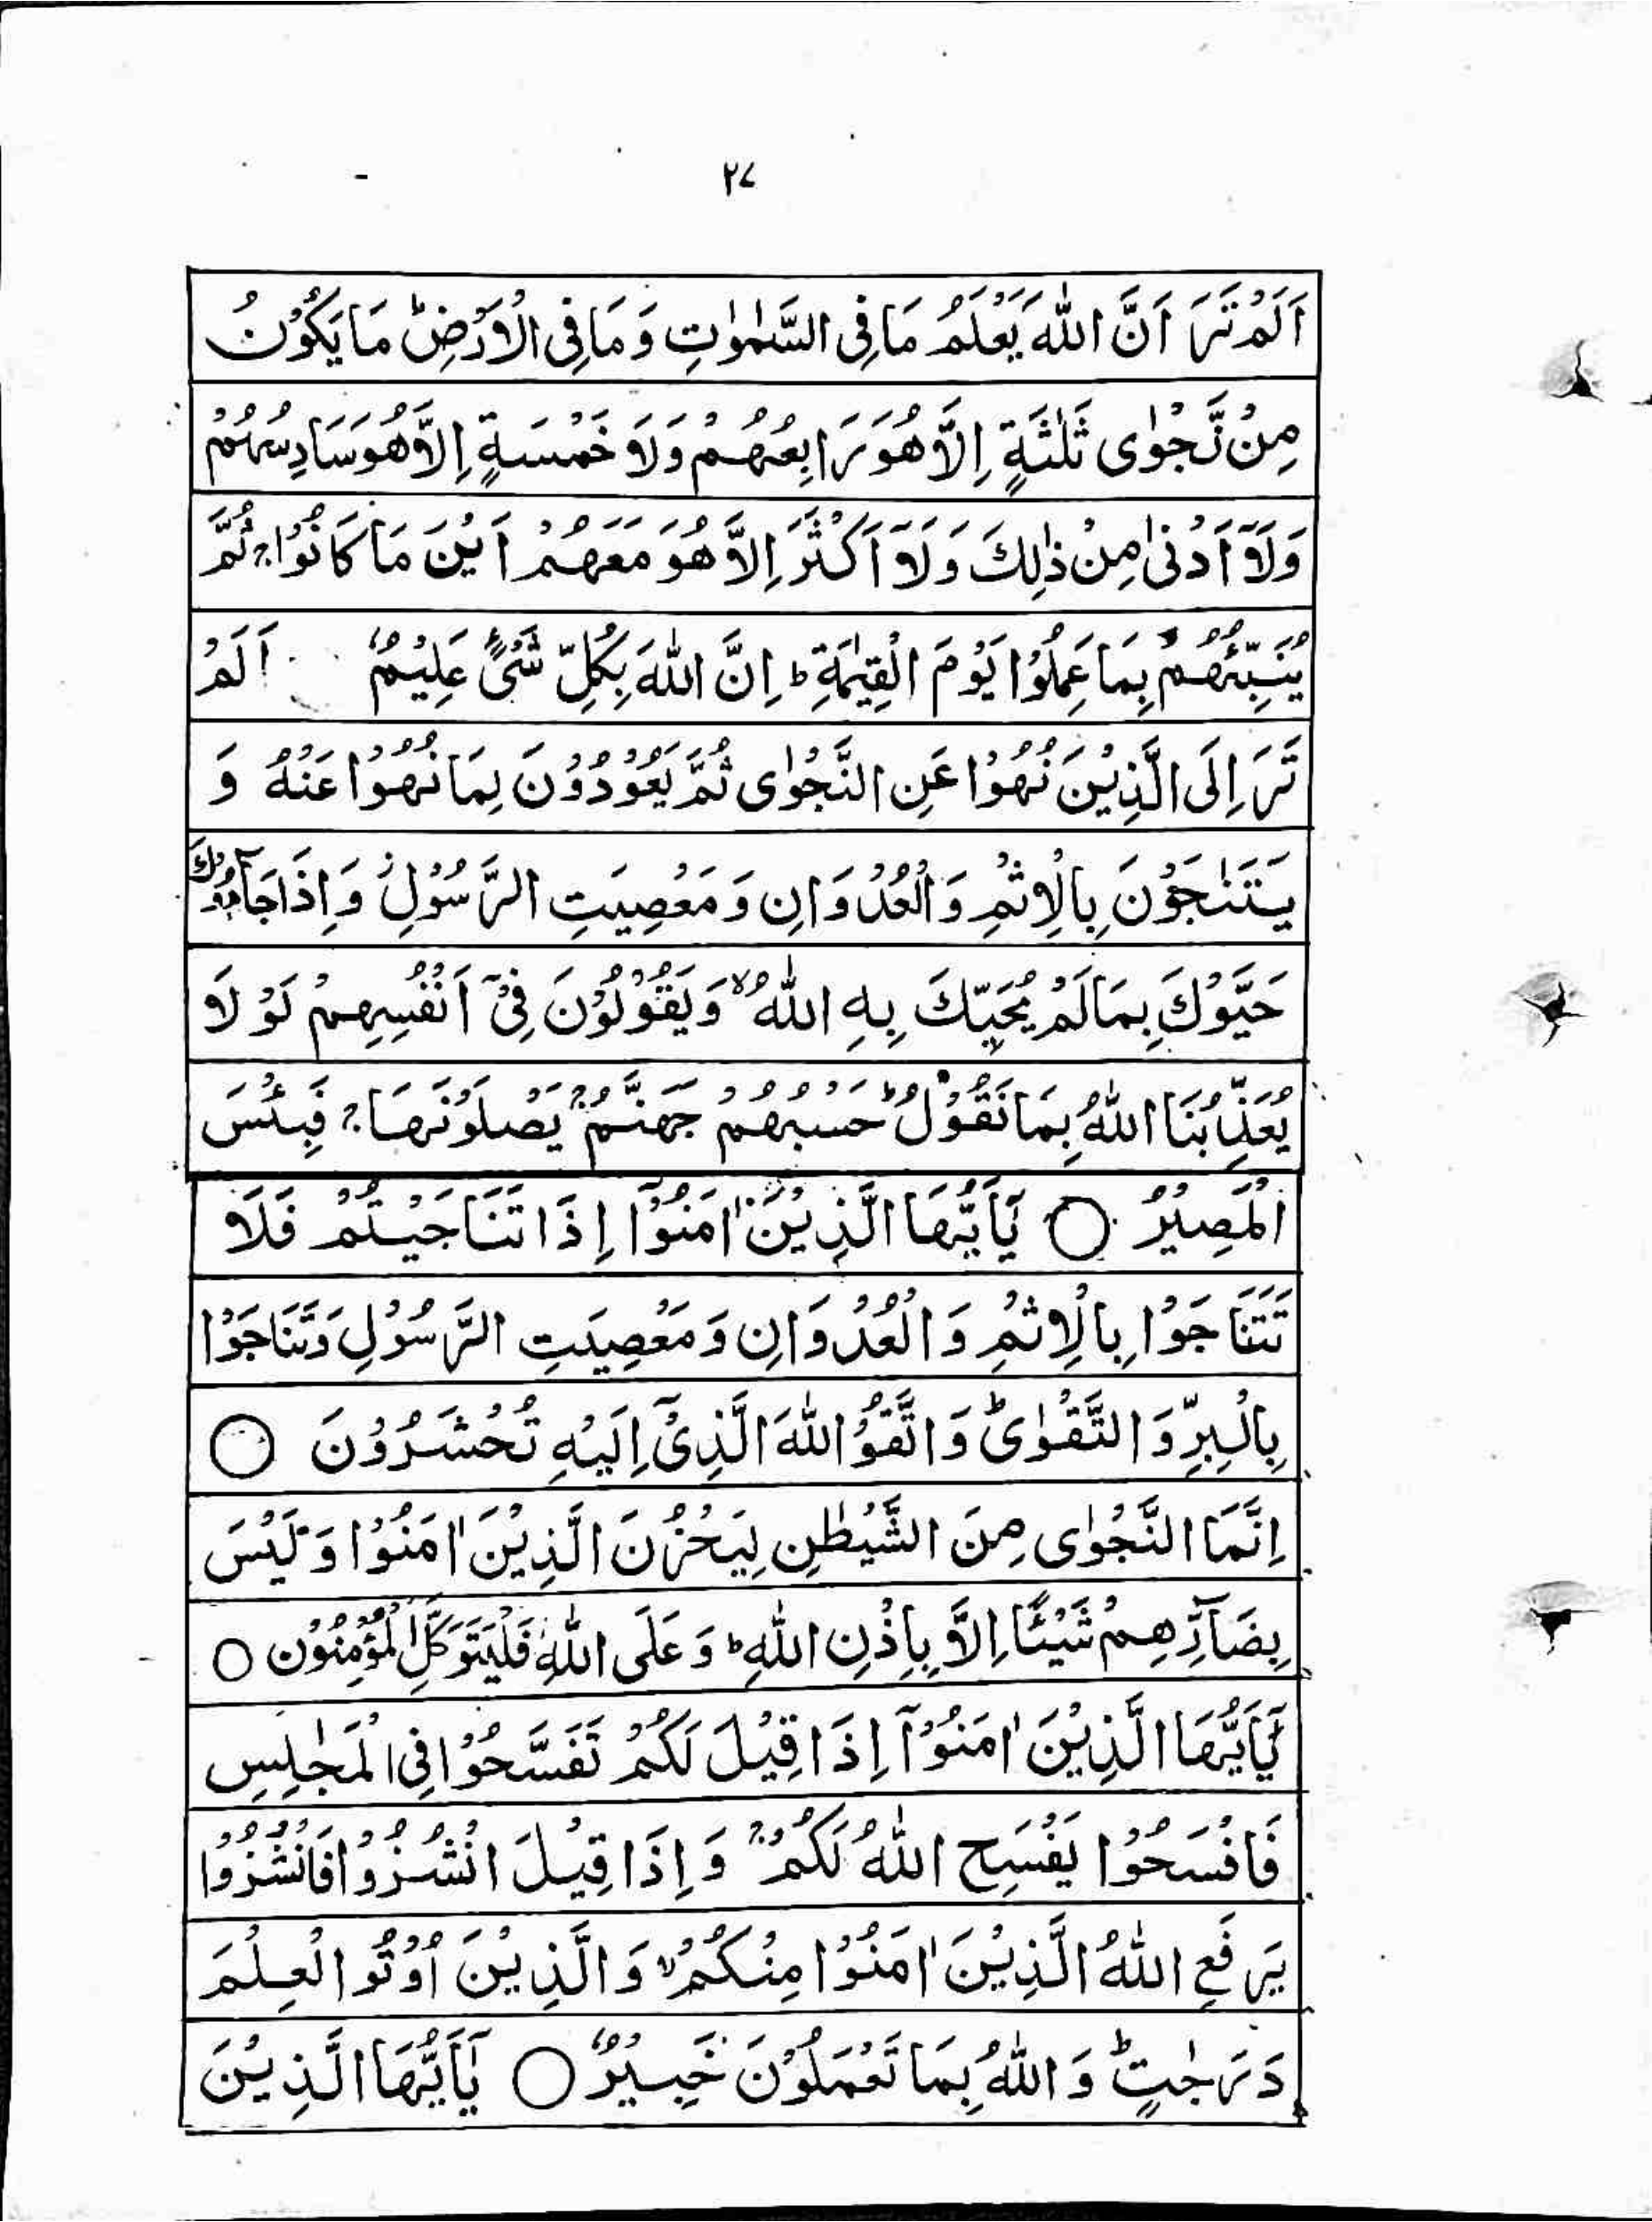 ۲۷
اَلَمْ تَرَ اَنَّ اللّٰهَ يَعْلَمُ مَا فِى السَّمٰوٰتِ وَمَا فِى الْاَرْضِ ؕ مَا يَكُوْنُ
مِنْ نَّجْوٰى ثَلٰثَةٍ اِلَّا هُوَ رَابِعُهُمْ وَلَا خَمْسَةٍ اِلَّا هُوَ سَادِسُهُمْ
وَلَآ اَدْنٰى مِنْ ذٰلِكَ وَلَآ اَكْثَرَ اِلَّا هُوَ مَعَهُمْ اَيْنَ مَا كَانُوْا ۚ ثُمَّ
يُنَبِّئُهُمْ بِمَا عَمِلُوْا يَوْمَ الْقِيٰمَةِ ؕ اِنَّ اللّٰهَ بِكُلِّ شَىْءٍ عَلِيْمٌ اَلَمْ
تَرَ اِلَى الَّذِيْنَ نُهُوْا عَنِ النَّجْوٰى ثُمَّ يَعُوْدُوْنَ لِمَا نُهُوْا عَنْهُ وَ
يَتَنٰجَوْنَ بِالْاِثْمِ وَالْعُدْوَانِ وَمَعْصِيَتِ الرَّسُوْلِ ؗ وَاِذَا جَآءُوْكَ
حَيَّوْكَ بِمَا لَمْ يُحَيِّكَ بِهِ اللّٰهُ ۙ وَيَقُوْلُوْنَ فِىْٓ اَنْفُسِهِمْ لَوْ لَا
يُعَذِّبُنَا اللّٰهُ بِمَا نَقُوْلُ ؕ حَسْبُهُمْ جَهَنَّمُ ۚ يَصْلَوْنَهَا ۚ فَبِئْسَ
الْمَصِيْرُ ○ يٰٓاَيُّهَا الَّذِيْنَ اٰمَنُوْٓا اِذَا تَنَاجَيْتُمْ فَلَا
تَتَنَاجَوْا بِالْاِثْمِ وَالْعُدْوَانِ وَمَعْصِيَتِ الرَّسُوْلِ وَتَنَاجَوْا
بِالْبِرِّ وَالتَّقْوٰى ؕ وَاتَّقُوا اللّٰهَ الَّذِىْٓ اِلَيْهِ تُحْشَرُوْنَ ○
اِنَّمَا النَّجْوٰى مِنَ الشَّيْطٰنِ لِيَحْزُنَ الَّذِيْنَ اٰمَنُوْا وَلَيْسَ
بِضَآرِّهِمْ شَيْئًا اِلَّا بِاِذْنِ اللّٰهِ ؕ وَعَلَى اللّٰهِ فَلْيَتَوَكَّلِ الْمُؤْمِنُوْنَ ○
يٰٓاَيُّهَا الَّذِيْنَ اٰمَنُوْٓا اِذَا قِيْلَ لَكُمْ تَفَسَّحُوْا فِى الْمَجٰلِسِ
فَافْسَحُوْا يَفْسَحِ اللّٰهُ لَكُمْ ۚ وَاِذَا قِيْلَ انْشُزُوْا فَانْشُزُوْا
يَرْفَعِ اللّٰهُ الَّذِيْنَ اٰمَنُوْا مِنْكُمْ ۙ وَالَّذِيْنَ اُوْتُوا الْعِلْمَ
دَرَجٰتٍ ؕ وَاللّٰهُ بِمَا تَعْمَلُوْنَ خَبِيْرٌ ○ يٰٓاَيُّهَا الَّذِيْنَ